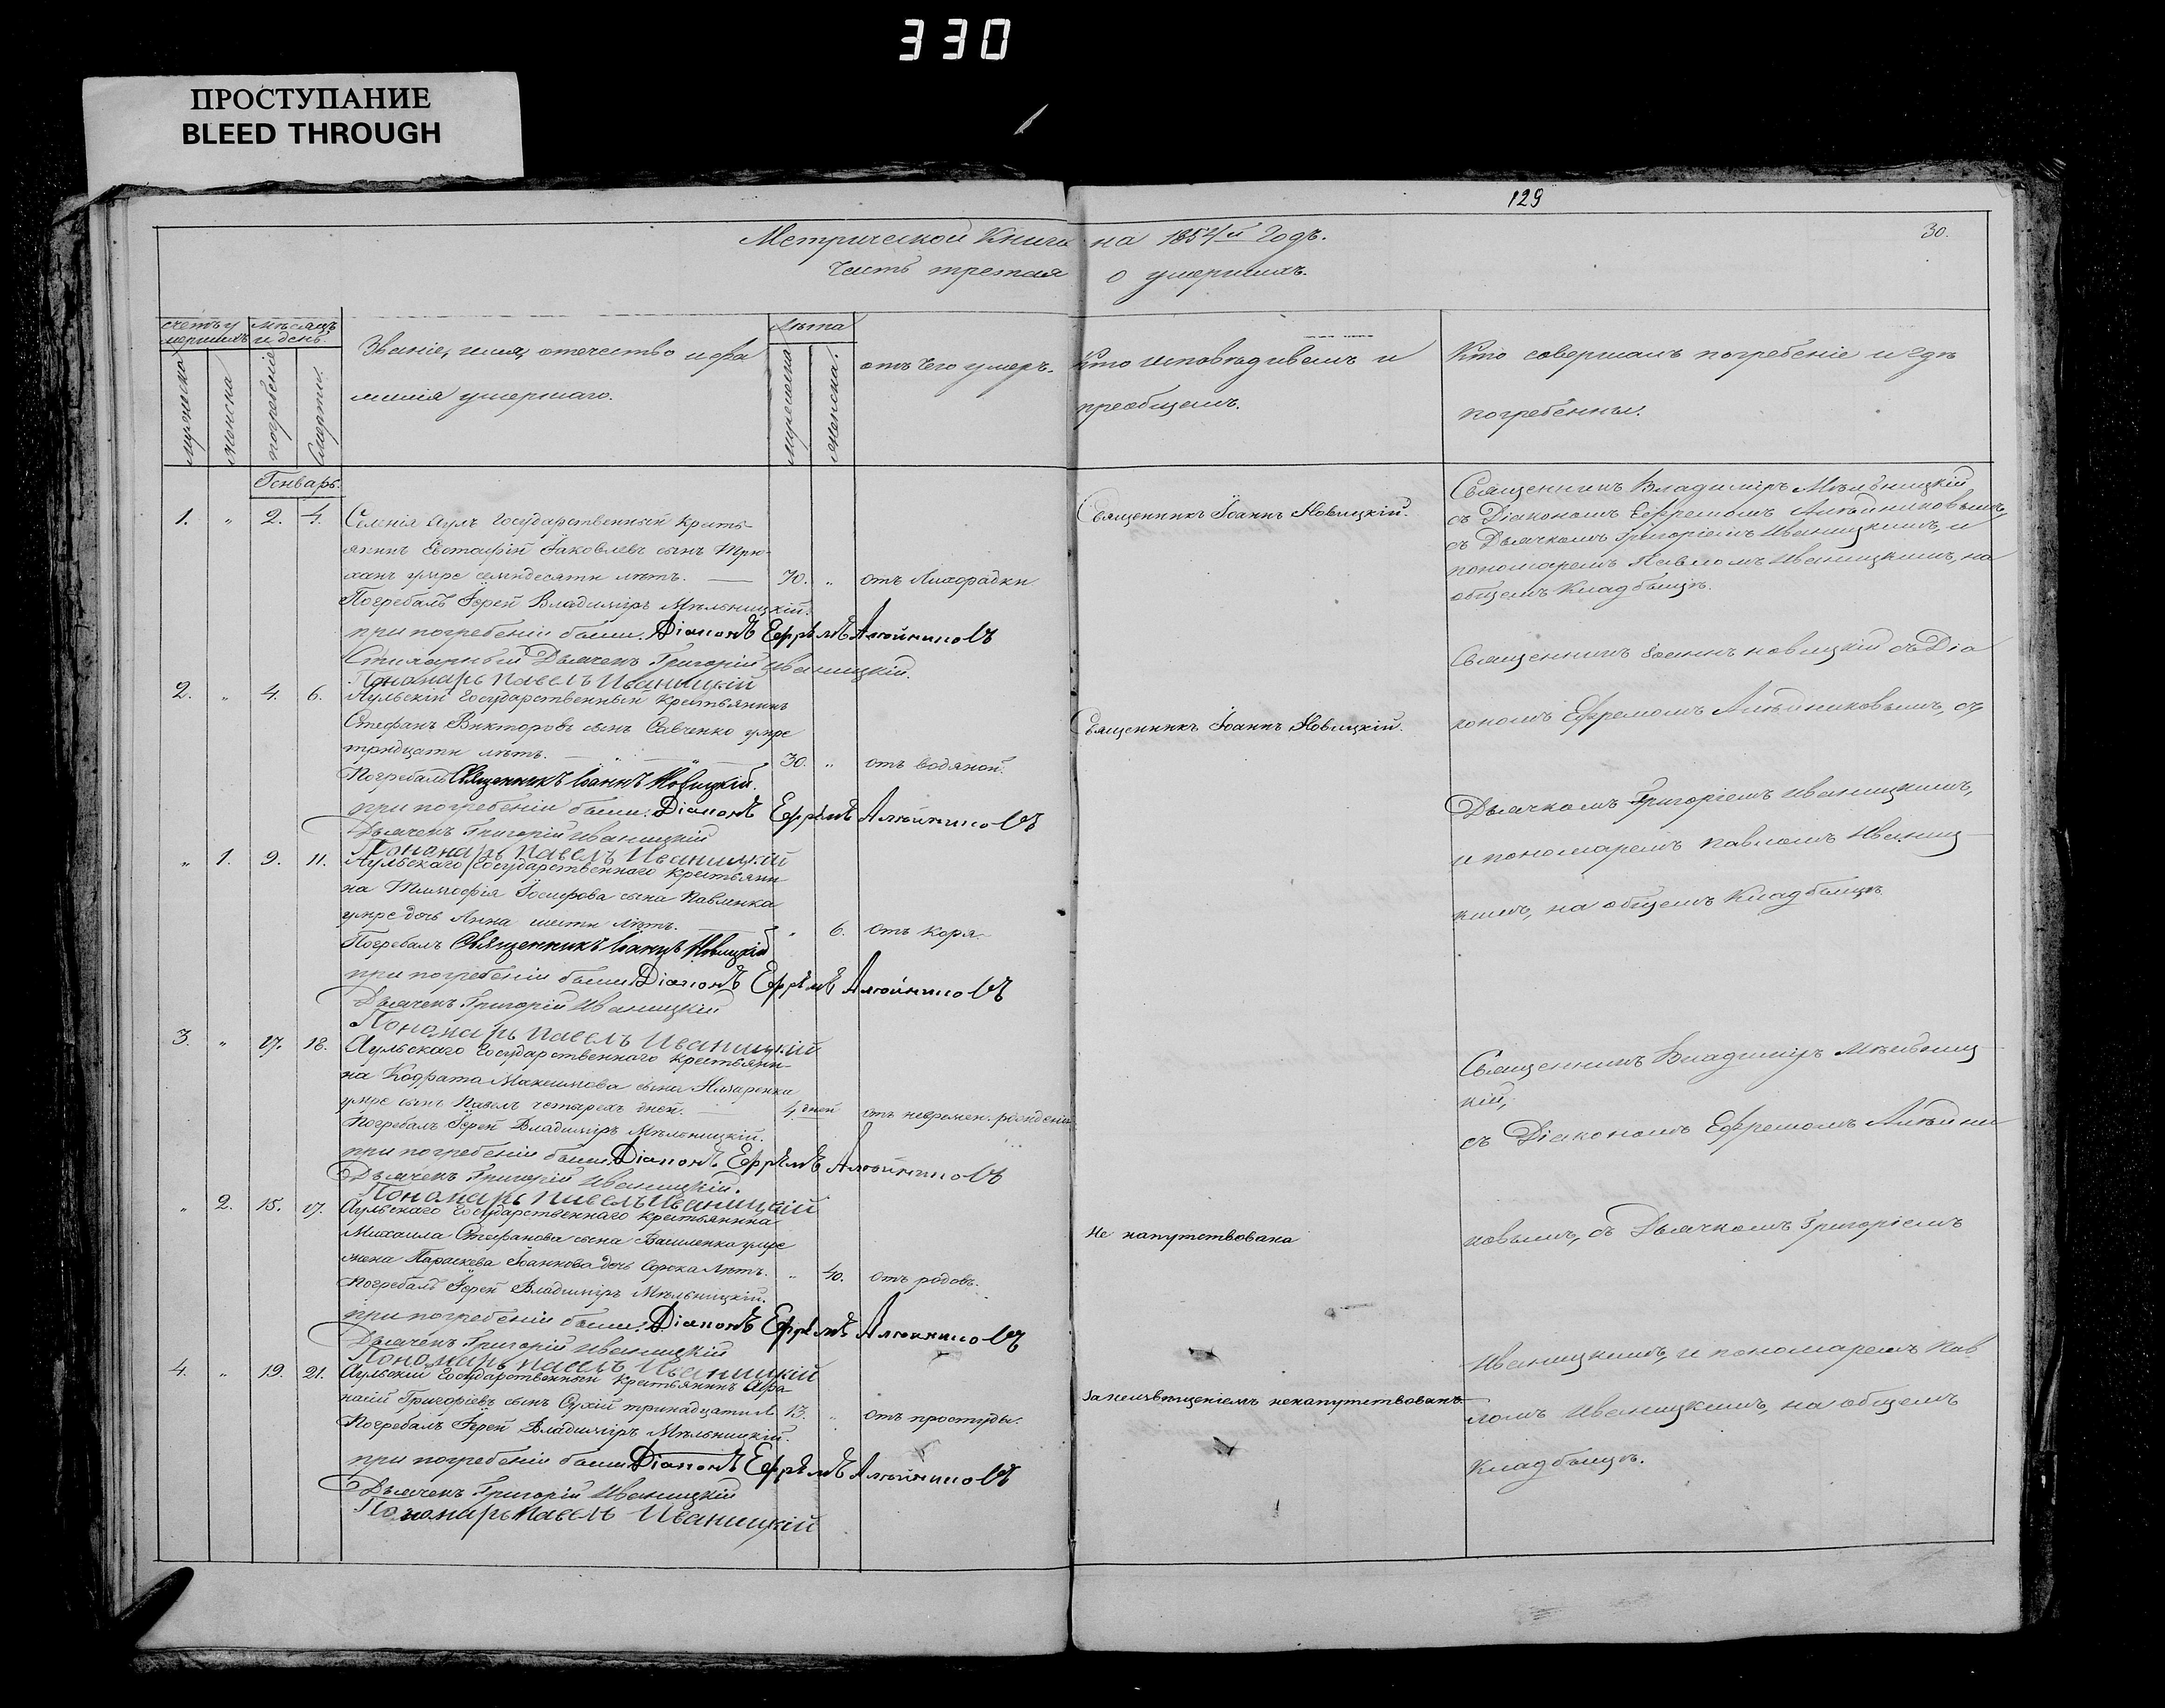 330
ПРОСТУПАНИЕ
BLEED THROUGH
129
30.
Метрической Книги на 1854й Годъ.
Часть третая о умершихъ.
Счетъ умершихъ
мѣсяцъ и день.
Званіе, имя, отечество и фамилія умершаго.
Лѣта
отъ чего умеръ.
Кто исповѣдывалъ и преобщалъ.
Кто совершалъ погребеніе и гдѣ погребенны.
мужеска
женска
погребенія
смерти.
мужеска
женска.
Генварь.
1. „ 2. 4. Селенія Аулъ Государственный крестьянинъ Евстафій Іаковлевъ сынъ
умре семидесяти лѣтъ. 70. „ отъ Лихорадки
Погребалъ Іерей Владиміръ Мѣльницкій.
при погребеніи были: Діаконъ Ефремъ Алейниковъ
Стихарный Дьячекъ Григорій Иваницкій.
Пономарь Павелъ Иваницкій
Священникъ Іоаннъ Новицкій.
Священникъ Владиміръ Мѣльницкій
съ Діакономъ Ефремомъ Алѣйниковымъ,
съ Дьячкомъ Григоріемъ Иваницкимъ, и
пономаремъ Павломъ Иваницкимъ, на
общемъ Кладбищѣ.
2. „ 4. 6. Аульскій Государственный крестьянинъ
Стефанъ Викторовъ сынъ Савченко умре
тридцати лѣтъ. 30. „ отъ водяной.
Погребалъ Священникъ Іоаннъ Новицкій.
при погребеніи были: Діаконъ Ефремъ Алейниковъ
Дьячекъ Григорій Иваницкій
Пономарь Павелъ Иваницкій
Священникъ Іоаннъ Новицкій.
Священникъ Іоаннъ новицкій съ Діа
кономъ Ефремомъ Алѣйниковымъ, съ
Дьячкомъ Григоріемъ Иваницкимъ,
и пономаремъ Павломъ Иваниц
кимъ, на общемъ Кладбищѣ
„ 1. 9. 11. Аульскаго Государственнаго крестьяни
на Тимофія Іосифова сына Павленка
умре дочь Анна шести лѣтъ. „ 6. отъ коря
Погребалъ Священникъ Іоаннъ Новицкій
при погребеніи были Діаконъ Ефремъ Алейниковъ
Дьячекъ Григорій Иваницкій
Пономарь Павелъ Иваницкій
3. „ 17. 18. Аульскаго Государственнаго крестьяни
на Кодрата Максимова сына
умре сынъ Павелъ четырехъ дней. 4 дней отъ невремен. рожденія
Погребалъ Іерей Владиміръ Мѣльницкій.
при погребеніи были: Діаконъ Ефремъ Алейниковъ
Дьячекъ Григорій Иваницкій.
Пономарь Павелъ Иваницкій
Священникъ Владиміръ Мѣльниц
кій,
съ Діакономъ Ефремомъ Алѣйни
„ 2. 15. 17. Аульскаго Государственнаго крестьянина
Михаила Стефанова сына Василенка умре
жена Параскева Іоаннова дочь сорока лѣтъ. „ 40. отъ родовъ.
Погребалъ Іерей Владиміръ Мѣльницкій.
при погребеніи были: Діаконъ Ефремъ Алейниковъ
Дьячекъ Григорій Иваницкій
Пономарь Павелъ Иваницкій
Не напутствована
ковымъ, съ Дьячкомъ Григоріемъ
4. „ 19. 21. Аульскій Государственный крестьянинъ Афа
насій Григоріевъ сынъ Сухій тринадцати л 13. „ отъ простуды.
Погребалъ Іерей Владиміръ Мѣльницкій.
при погребеніи были Діаконъ Ефремъ Алейниковъ
Дьячекъ Григорій Иваницкій
Пономарь Павелъ Иваницкій
За неизвѣщеніемъ ненапутствованъ
Иваницкимъ, и пономаремъ Пав
ломъ Иваницкимъ, на общемъ
Кладбищѣ.